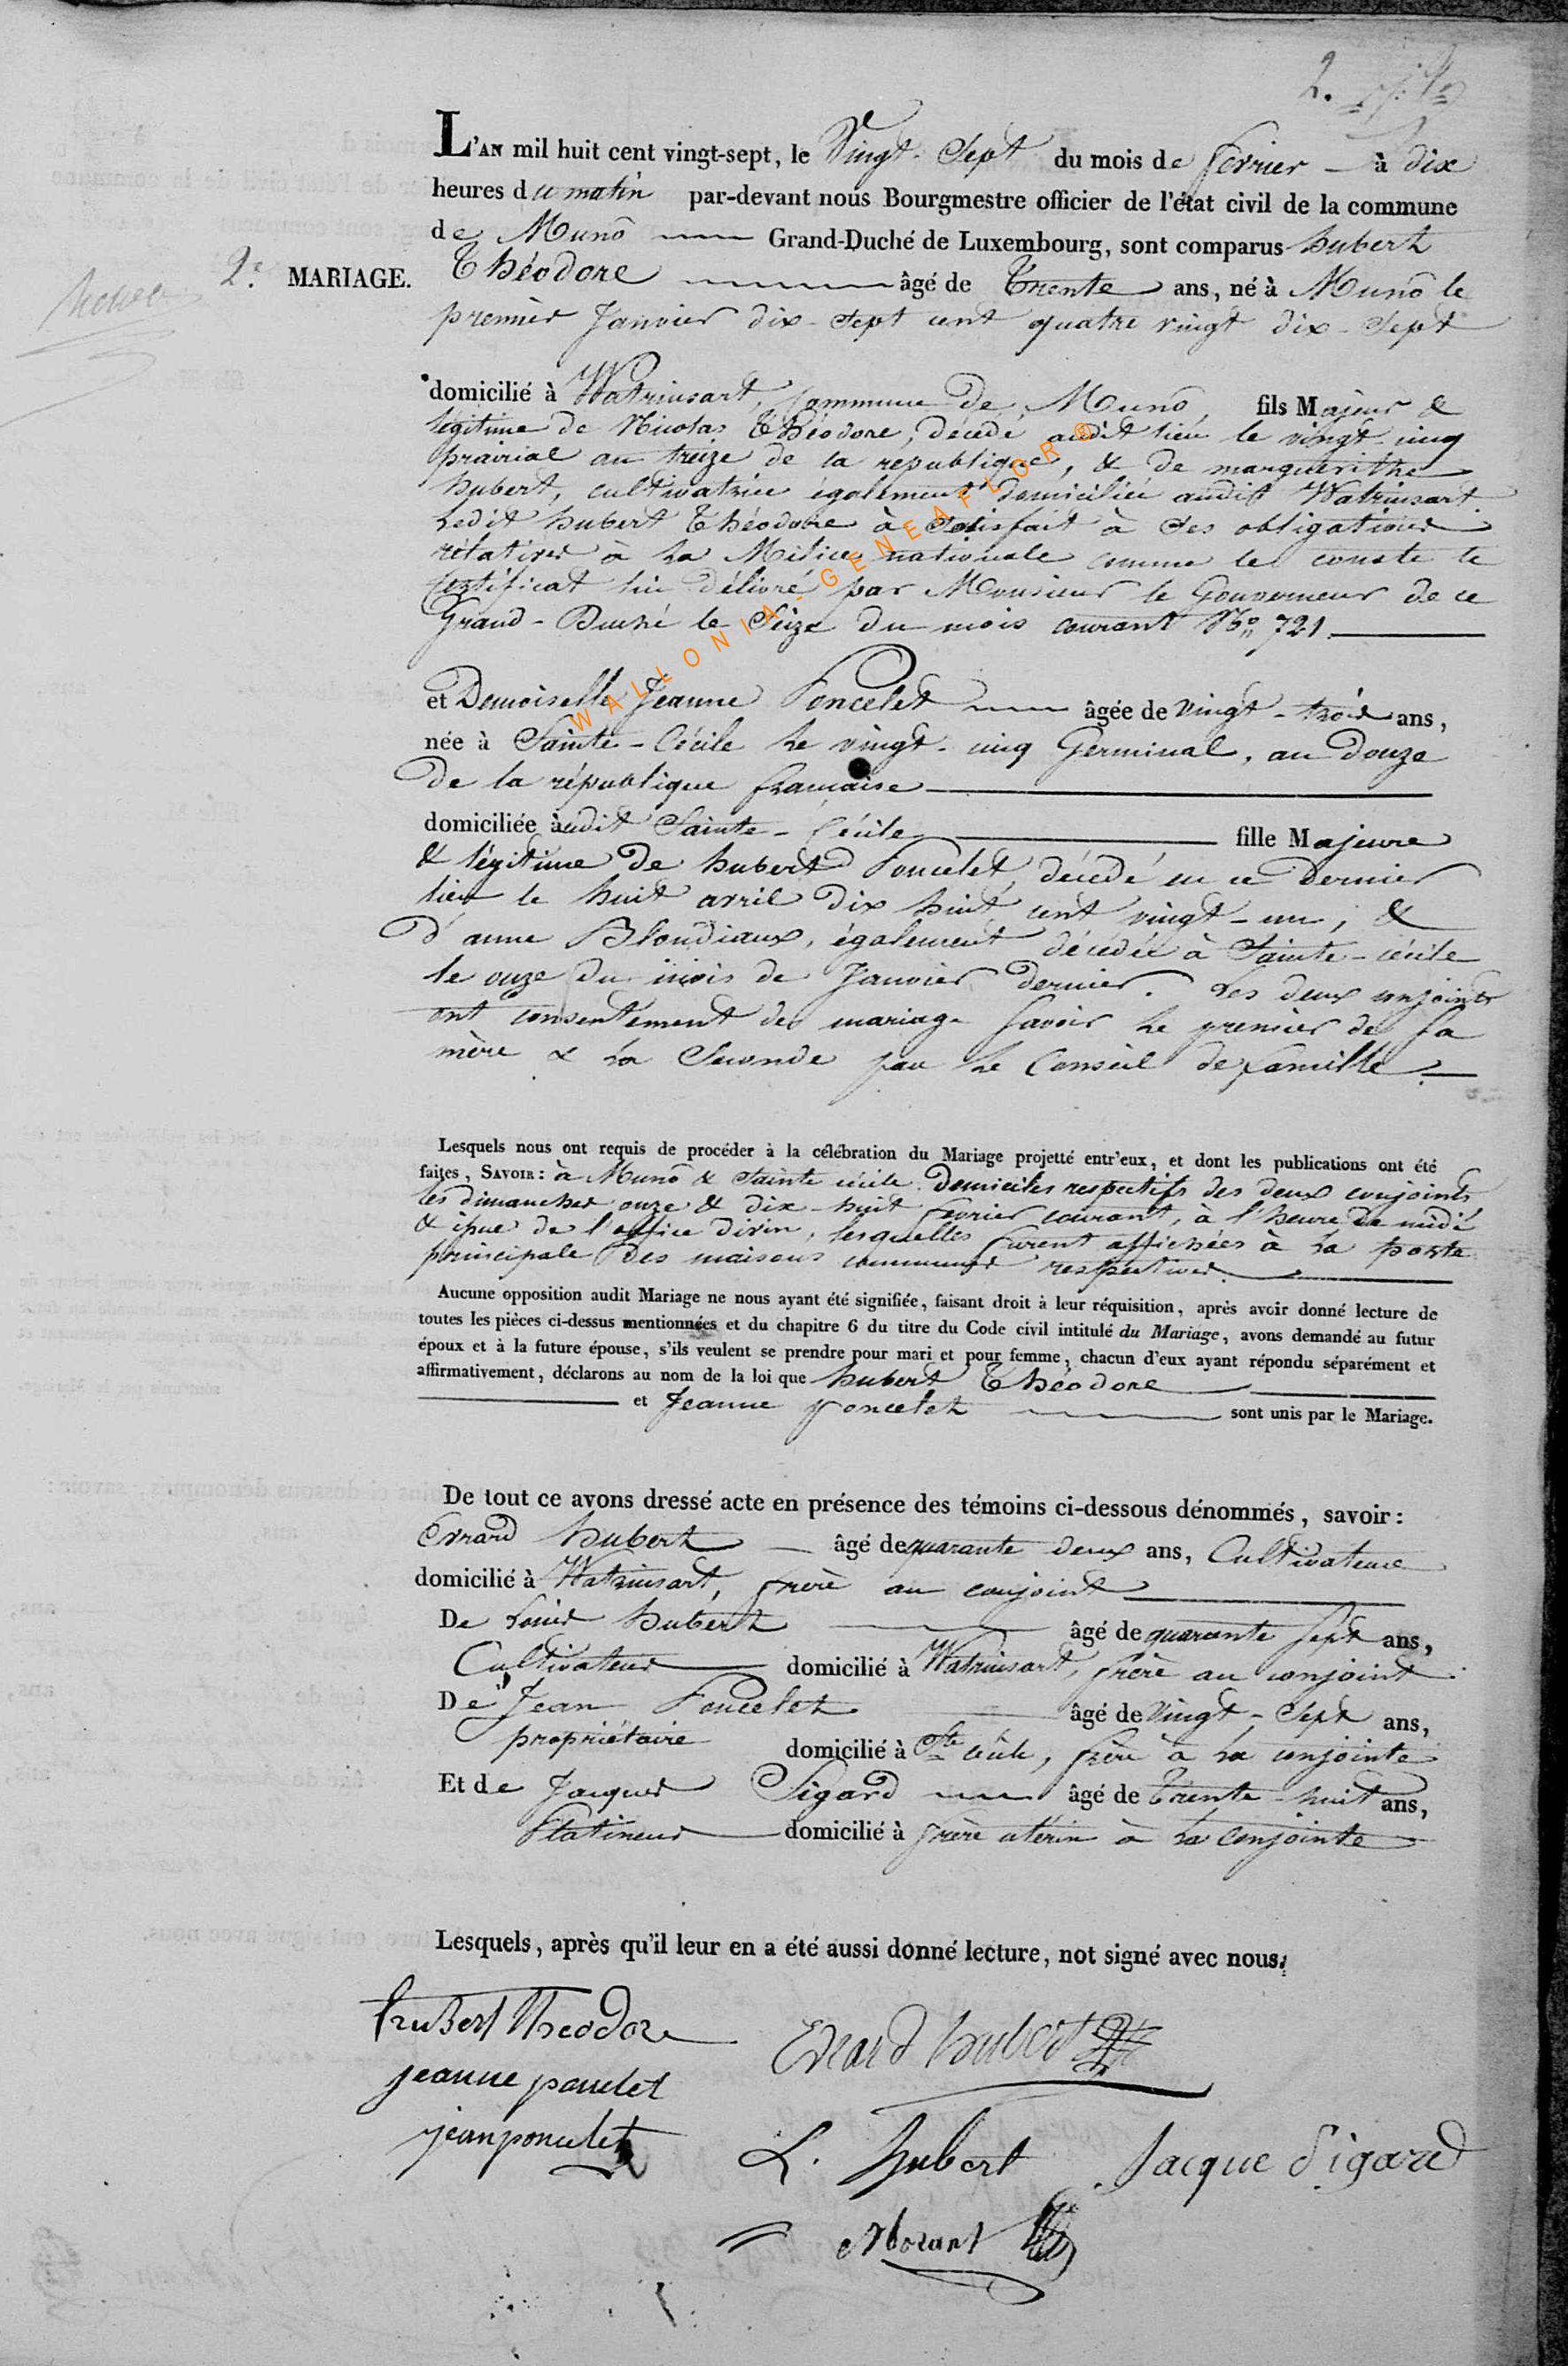 2.
L'AN mil huit cent vingt-sept, le Vingt-Sept du mois de fevrier à dix
heures du matin par-devant nous Bourgmestre officier de l'état civil de la commune
de Munô Grand-Duché de Luxembourg, sont comparus hubert
2.e MARIAGE. Théodore âgé de Trente ans, né à Munô le
premièr Janvier dix-Sept cent quatre vingt dix-Sept
domicilié à Watrinsart, Commune de Munô, fils Majeur &
légitime de Nicolas Théodore, décédé audit lieu le vingt-cinq
prairial an treize de la republique, & de marguerithe
hubert, cultivatrice également domiciliée audit Watrinsart.
Ledit hubert Théodore à Satisfait à Ses obligations
rélatives à la Milice nationale comme le conste le
Certificat lui délivré par Monsieur le Gouverneur de ce
Grand-Duché le Seize du mois courant No. 721.
et Demoiselle Jeanne Poncelet âgée de vingt-trois ans,
née à Sainte-Cécile le vingt-cinq Germinal, an Douze
De la république française
domiciliée audit Sainte-Cécile fille Majeure
& légitime de hubert Poncelet, décédé en ce Dernier
lieu le huit avril Dix huit cent vingt-un, &
D'anne Blondiaux, également décédée à Sainte-cécile
le onze Du mois de Janvier Dernier. Les deux conjoints
ont consentement de mariage Savoir le premier de sa
mère & la Seconde par le Conseil de famille.
Lesquels nous ont requis de procéder à la célébration du Mariage projetté entr'eux, et dont les publications ont été
faites, SAVOIR: à Munô & Sainte cécile Domiciles respectifs des deux conjoints
les dimanches onze & dix-huit fevrier courant, à l'heure de midi
& issue de l'office divin, lesquelles furent affichées à la porte
principale Des maisons communes respectives.
Aucune opposition audit Mariage ne nous ayant été signifiée, faisant droit à leur réquisition, après avoir donné lecture de
toutes les pièces ci-dessus mentionnées et du chapitre 6 du titre du Code civil intitulé du Mariage, avons demandé au futur
époux et à la future épouse, s'ils veulent se prendre pour mari et pour femme, chacun d'eux ayant répondu séparément et
affirmativement, déclarons au nom de la loi que hubert Théodore
et Jeanne poncelet sont unis par le Mariage.
De tout ce avons dressé acte en présence des témoins ci-dessous dénommés, savoir:
Evrard hubert âgé de quarante deux ans, Cultivateur
domicilié à Watrinsart, frère au conjoint
De Louis hubert âgé de quarante sept ans,
Cultivateur domicilié à Watrinsart, frère au conjoint
De Jean Poncelet âgé de vingt-Sept ans,
propriétaire domicilié à Ste cécile, frère à la conjointe
Et de Jacques Sigard âgé de trente-huit ans,
Platineur domicilié à frère utérin à la conjointe
Lesquels, après qu'il leur en a été aussi donné lecture, not signé avec nous.
huBert Theodore
Evrard hubert
jeanne poncelet
jean poncelet
L. hubert
Jacque Sigard
WALLONIA-GENEAFLOR®